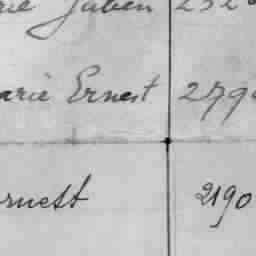 Juben 252
arie Ernest 279
rnest 2190